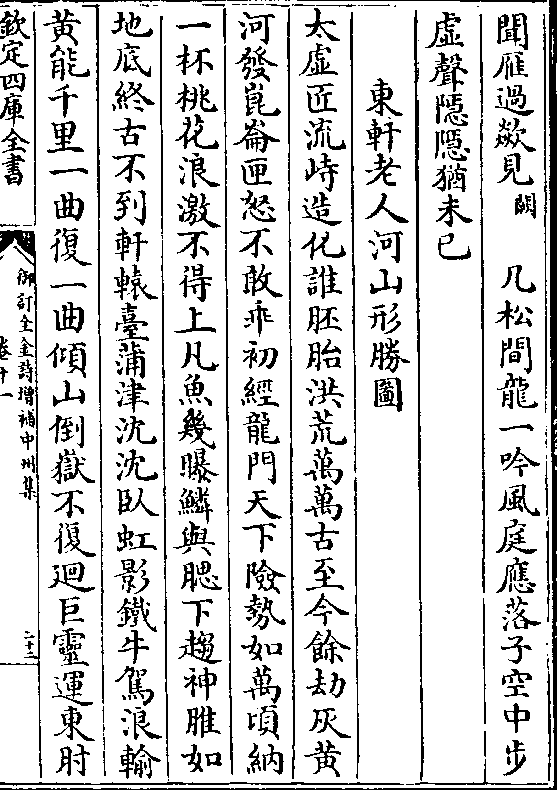 聞雁過歘見闕　几松間龍一吟風庭應落子空中步
虛聲隱隱猶未已
東軒老人河山形勝圖
太虛匠流峙造化誰胚胎洪荒萬萬古至今餘劫灰黃
河發崑崙匣怒不敢乖初經龍門天下險勢如萬頃納
一杯桃花浪激不得上凡魚幾曝鱗與腮下趨神脽如
地底終古不到軒轅臺蒲津沈沈臥虹影鐵牛駕浪輸
黃能千里一曲復一曲傾山倒嶽不復迴巨靈運東肘
欽定四庫全書
御訂全金詩增補中州集
卷十一
二十三